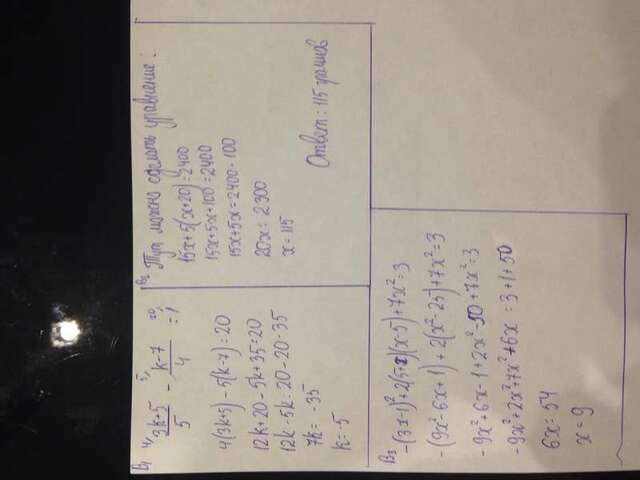 B1
4/ 3k+5/5 - 5/ k-7/4 = 20/ 1
4(3k+5) - 5(k-7) = 20
12k+20 - 5k+35 = 20
12k - 5k = 20 - 20 - 35
7k = -35
k = -5
B2
Тут можно сделать уравнение:
15x+5(x+20) = 2400
15x+5x+100 = 2400
15x+5x = 2400 - 100
20x = 2300
x = 115
Ответ: 115 граммов
B3
-(3x-1)²+2(5+x)(x-5)+7x²=3
-(9x²-6x+1)+2(x²-25)+7x²=3
-9x²+6x-1+2x²-50+7x²=3
-9x²+2x²+7x²+6x = 3+1+50
6x = 54
x = 9